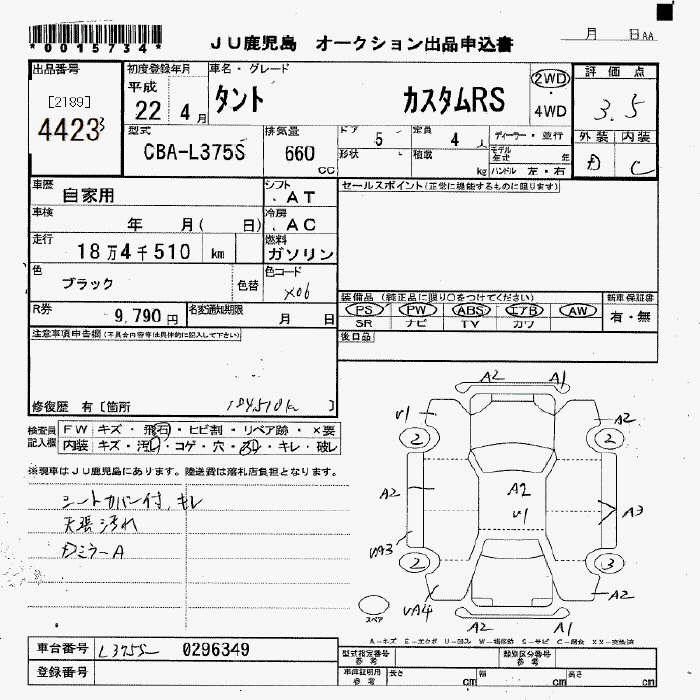 *0015734*
JU鹿児島 オークション出品申込書
月 日 AA
出品番号
[2189]
4423
初度登録年月
平成
22年 4月
車名・グレード
タント カスタムRS
2WD
・
4WD
評価点
3.5
外装 内装
D C
型式
CBA-L375S
排気量
660
cc
ドア 5
定員 4人
形状
積載 kg
ディーラー・並行
モデル年式 年
ハンドル 左・右
車歴
自家用
シフト
AT
セールスポイント(正常に機能するものに限ります)
車検
年 月( 日)
冷房
AC
走行
18万4千510 km
燃料
ガソリン
色
ブラック
色替
色コード
X06
R券
9,790円
名変通知期限
月 日
装備品 (純正品に限り○をつけてください)
PS PW ABS エアB AW
SR ナビ TV カワ
新車保証書
有・無
後日品
注意事項申告欄(不具合内容等は具体的に記入して下さい)
修復歴 有 [箇所 184510k ]
検査員記入欄
FW キズ・飛石・ヒビ割・リペア跡・×要
内装 キズ・汚れ・コゲ・穴・スレ・キレ・破レ
※現車はJU鹿児島にあります。陸送費は落札店負担となります。
シートカバー付、キレ
天張汚れ
DミラーA
A2 A1
V1 A2
2 2
A2 A2 A3
V1
VA3
2 3
VA4 A2
A2 A1
スペア
A-キズ E-エクボ U-凹み W-補修跡 S-サビ C-腐食 XX-交換済
車台番号 L375S- 0296349
登録番号
型式指定番号
参考
類別区分番号
参考
車庫証明用
参考
長さ cm 幅 cm 高さ cm